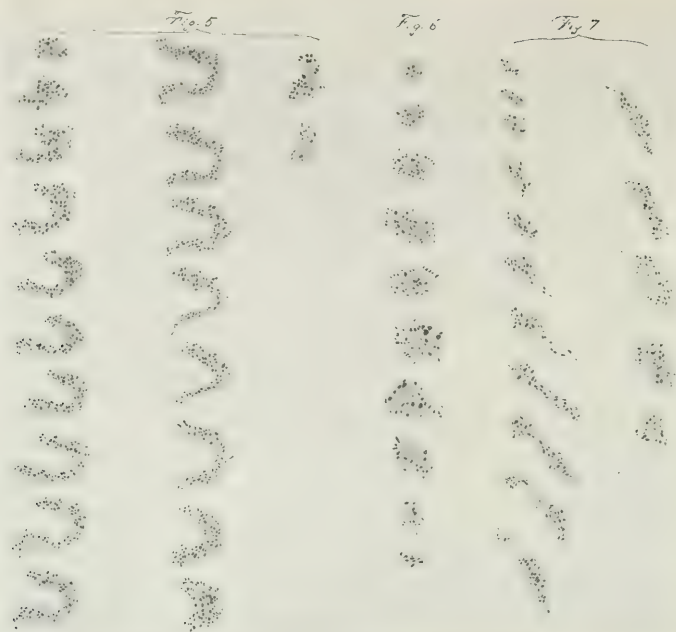 Fig. 5
Fig. 6
Fig 7